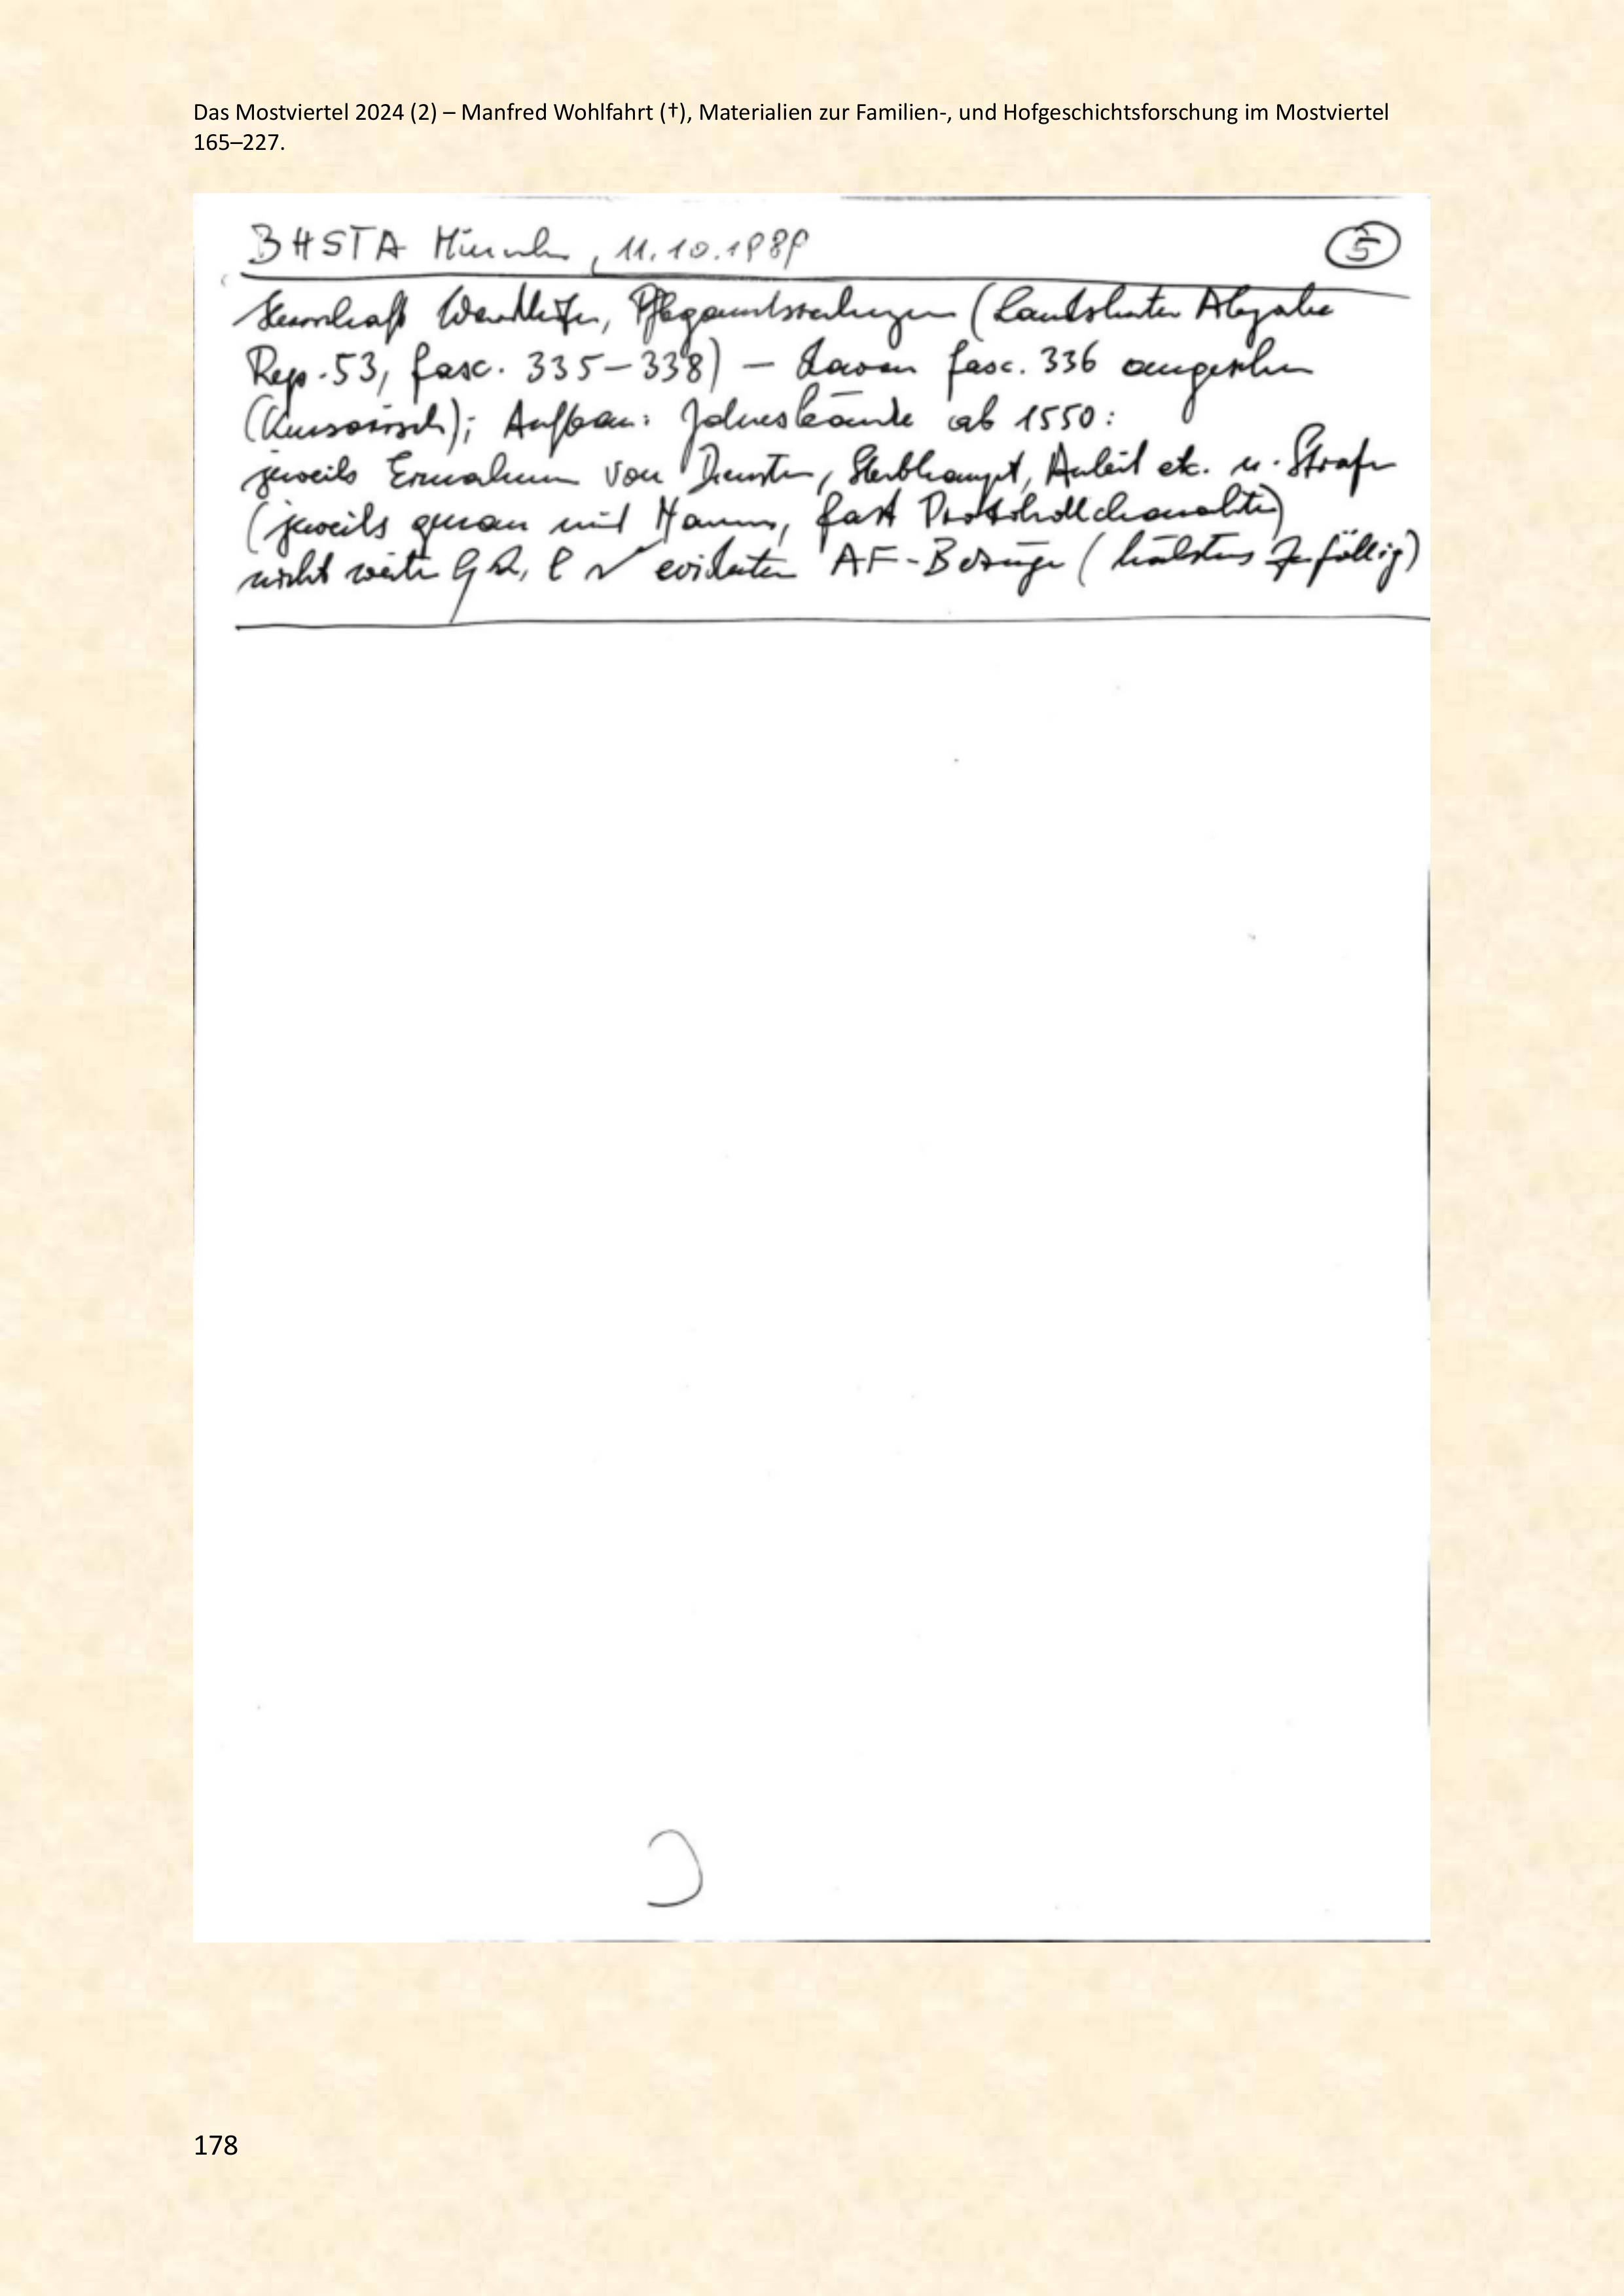 Das Mostviertel 2024 (2) – Manfred Wohlfahrt (†), Materialien zur Familien-, und Hofgeschichtsforschung im Mostviertel
165–227.
BHSTA München, 11.10.1989
5
Herrschaft Pflegamtsrechnungen (Landshuter Abgabe
Rep. 53, fasc. 335–338) – davon fasc. 336 angesehen
(Kursorisch); Aufbau: Jahresbände ab 1550:
jeweils Einnahmen von Diensten, Sterbhaupt, Anleit etc. u. Strafen
(jeweils genau mit Namen, fast Protokollcharakter)
nicht weiter evidenten AF-Bezüge (höchstens zufällig)
178